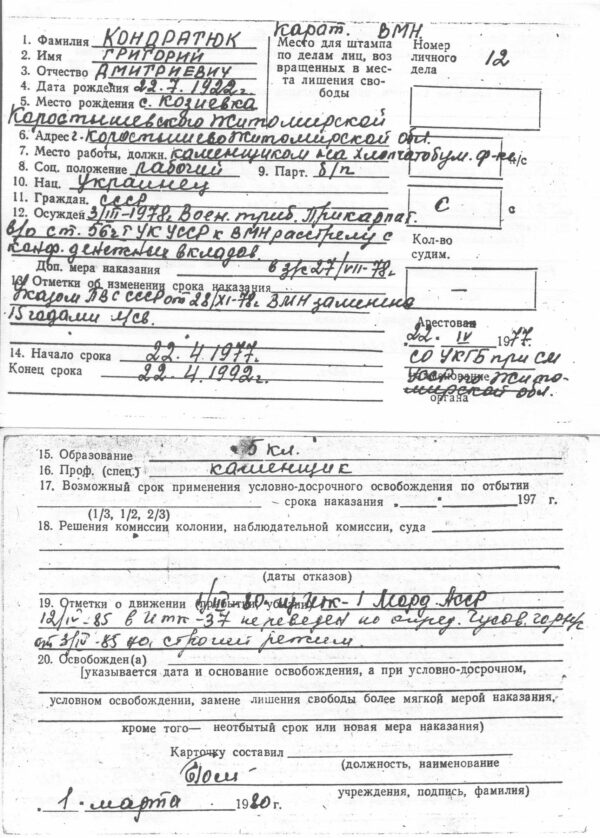 Карат. ВМН.
1. Фамилия КОНДРАТЮК
2. Имя ГРИГОРИЙ
3. Отчество ДМИТРИЕВИЧ
4. Дата рождения 22.7.1922г.
5. Место рождения с. Козиевка
Коростышевского Житомирской
Место для штампа
по делам лиц, воз
вращенных в мес-
та лишения сво-
боды
Номер
личного
дела
12
6. Адрес г. Коростышево Житомирской обл.
7. Место работы, должн. каменщиком на хлопчатобум. ф-ке
8. Соц. положение рабочий 9. Парт. б/п
н/с
10. Нац. Украинец
11. Граждан. СССР
С с
12. Осужден 3/III-1978г. Воен. триб. Прикарпат.
в/о ст. 56 ч. I УК УССР к ВМН расстрелу с
конф. денежных вкладов.
Доп. мера наказания в з/с 27/VII-78г.
Кол-во
судим.
—
13. Отметки об изменении срока наказания
Указом ПВС СССР от 28/XI-78г. ВМН заменена
15 годами л/св.
Арестован
22. IV 1977.
14. Начало срока 22.4.1977.
Конец срока 22.4.1992г.
СО УКГБ при СМ
УССР по Жито-
мирской обл.
наименование
органа
15. Образование 5 кл.
16. Проф. (спец.) каменщик
17. Возможный срок применения условно-досрочного освобождения по отбытии
— срока наказания . . 197 г.
(1/3, 1/2, 2/3)
18. Решения комиссии колонии, наблюдательной комиссии, суда
(даты отказов)
19. Отметки о движении (прибытии, убытии) 80 из ИТК-1 Морд. АССР
12/IV-85 в ИТК-37 переведен по опред. Чусов. гор н/с
от 3/IV-85 на строгий режим.
20. Освобожден(а)
[указывается дата и основание освобождения, а при условно-досрочном,
условном освобождении, замене лишения свободы более мягкой мерой наказания,
кроме того— неотбытый срок или новая мера наказания)
Карточку составил
(должность, наименование
учреждения, подпись, фамилия)
„ 1 " марта 1980г.